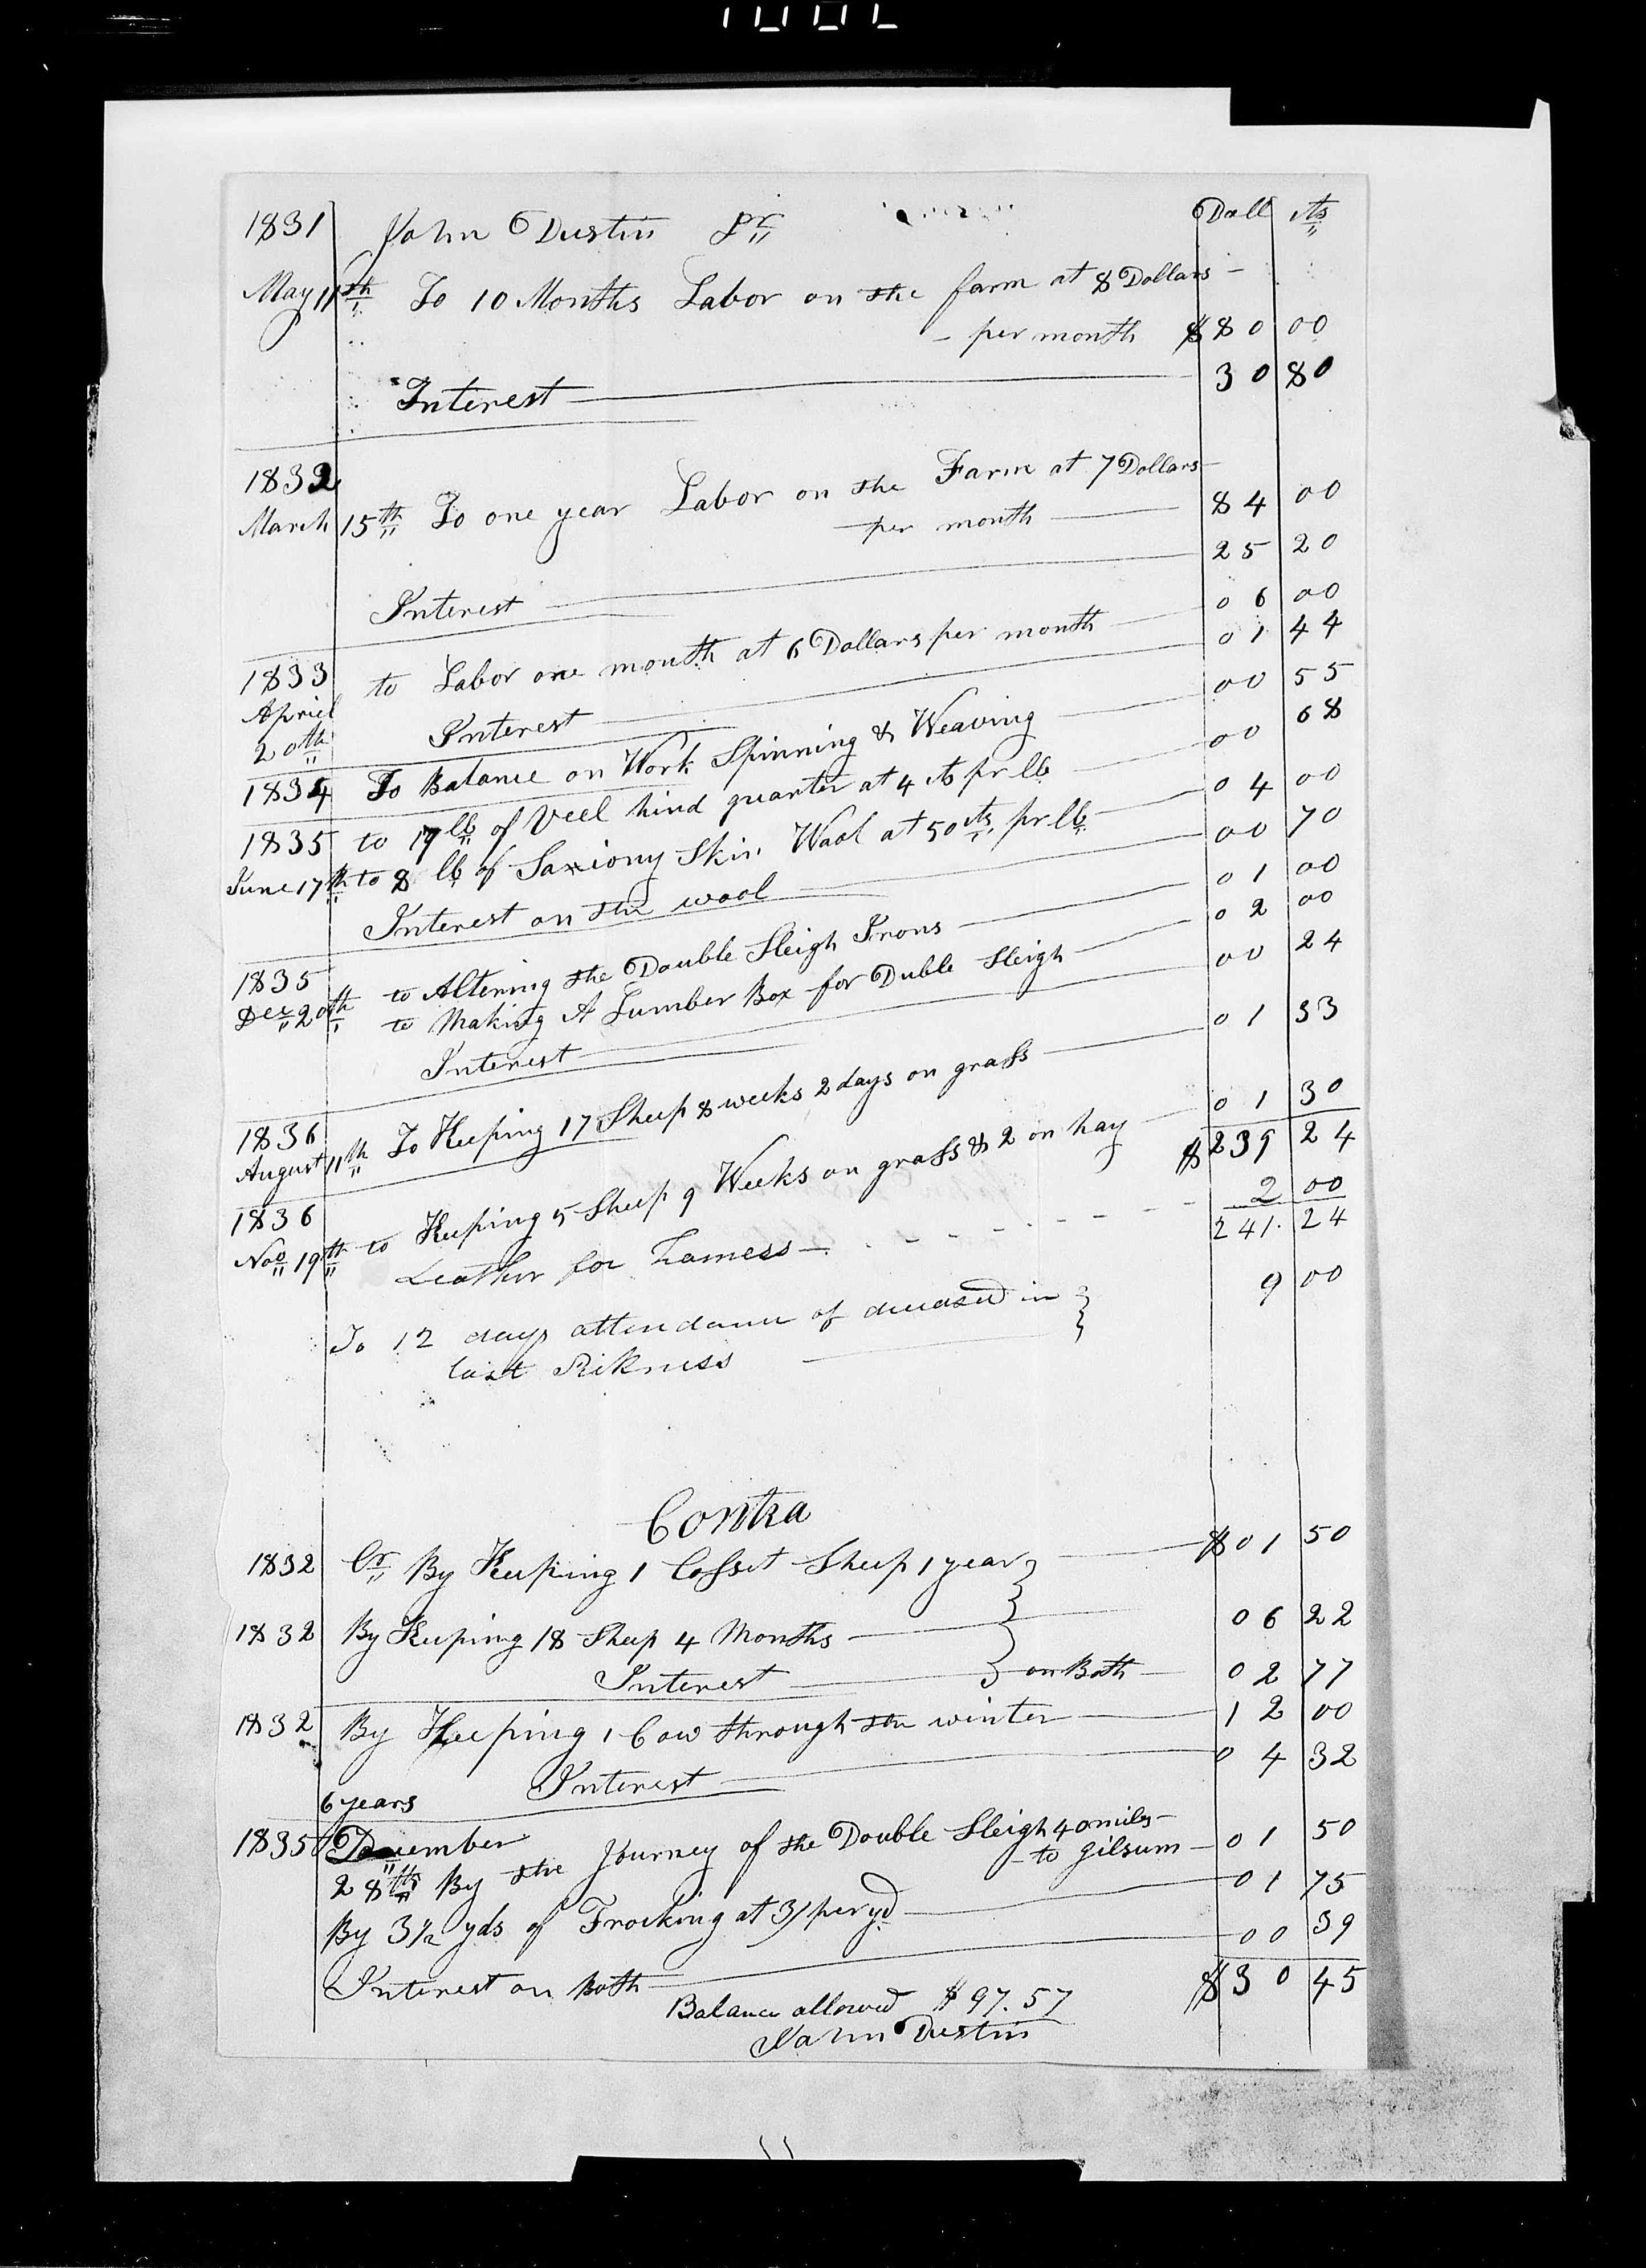 1831 John Dustin Dr Doll cts
May 11th To 10 Months Labor on the farm at 8 Dollars
per month $80 00
Interest 30 80
1832
March 15th To one year Labor on the Farm at 7 Dollars
per month 84 00
Interest 25 20
1833 to Labor one month at 6 Dollars per month 06 00
Apriel
20th Interest 01 44
1834 To Balance on Work Spinning & Weaving 00 55
1835 to 17 lb of Veel hind quarter at 4 cts pr lb 00 68
June 17th to 8 lb of Saxiony Skin Wool at 50 cts pr lb 04 00
Interest on the wool 00 70
1835
Dec 20th to Altering the Double Sleigh Irons 01 00
to Making A Lumber Box for Duble Sleigh 02 00
Interest 00 24
1836
August 11th To Keeping 17 Sheep 8 weeks 2 days on grass 01 33
1836
Nov 19th to Keeping 5 Sheep 9 Weeks on grass & 2 on hay 01 30
$239 24
Leather for Harness 2 00
241. 24
To 12 days attendance of deceased in
last Sikness 9 00
Contra
1832 Cr By Keeping 1 Cosset Sheep 1 year $01 50
1832 By Keeping 18 Sheep 4 Months 06 22
Interest on Both 02 77
1832 By Keeping 1 Cow through the winter 12 00
Interest 04 32
6 years
1835 December
28th By the Journey of the Double Sleigh 40 miles
to Gilsum 01 50
By 3 1/2 yds of Frocking at 3/ per yd 01 75
Interest on Both 00 39
$30 45
Balance allowed $97.57
John Dustin